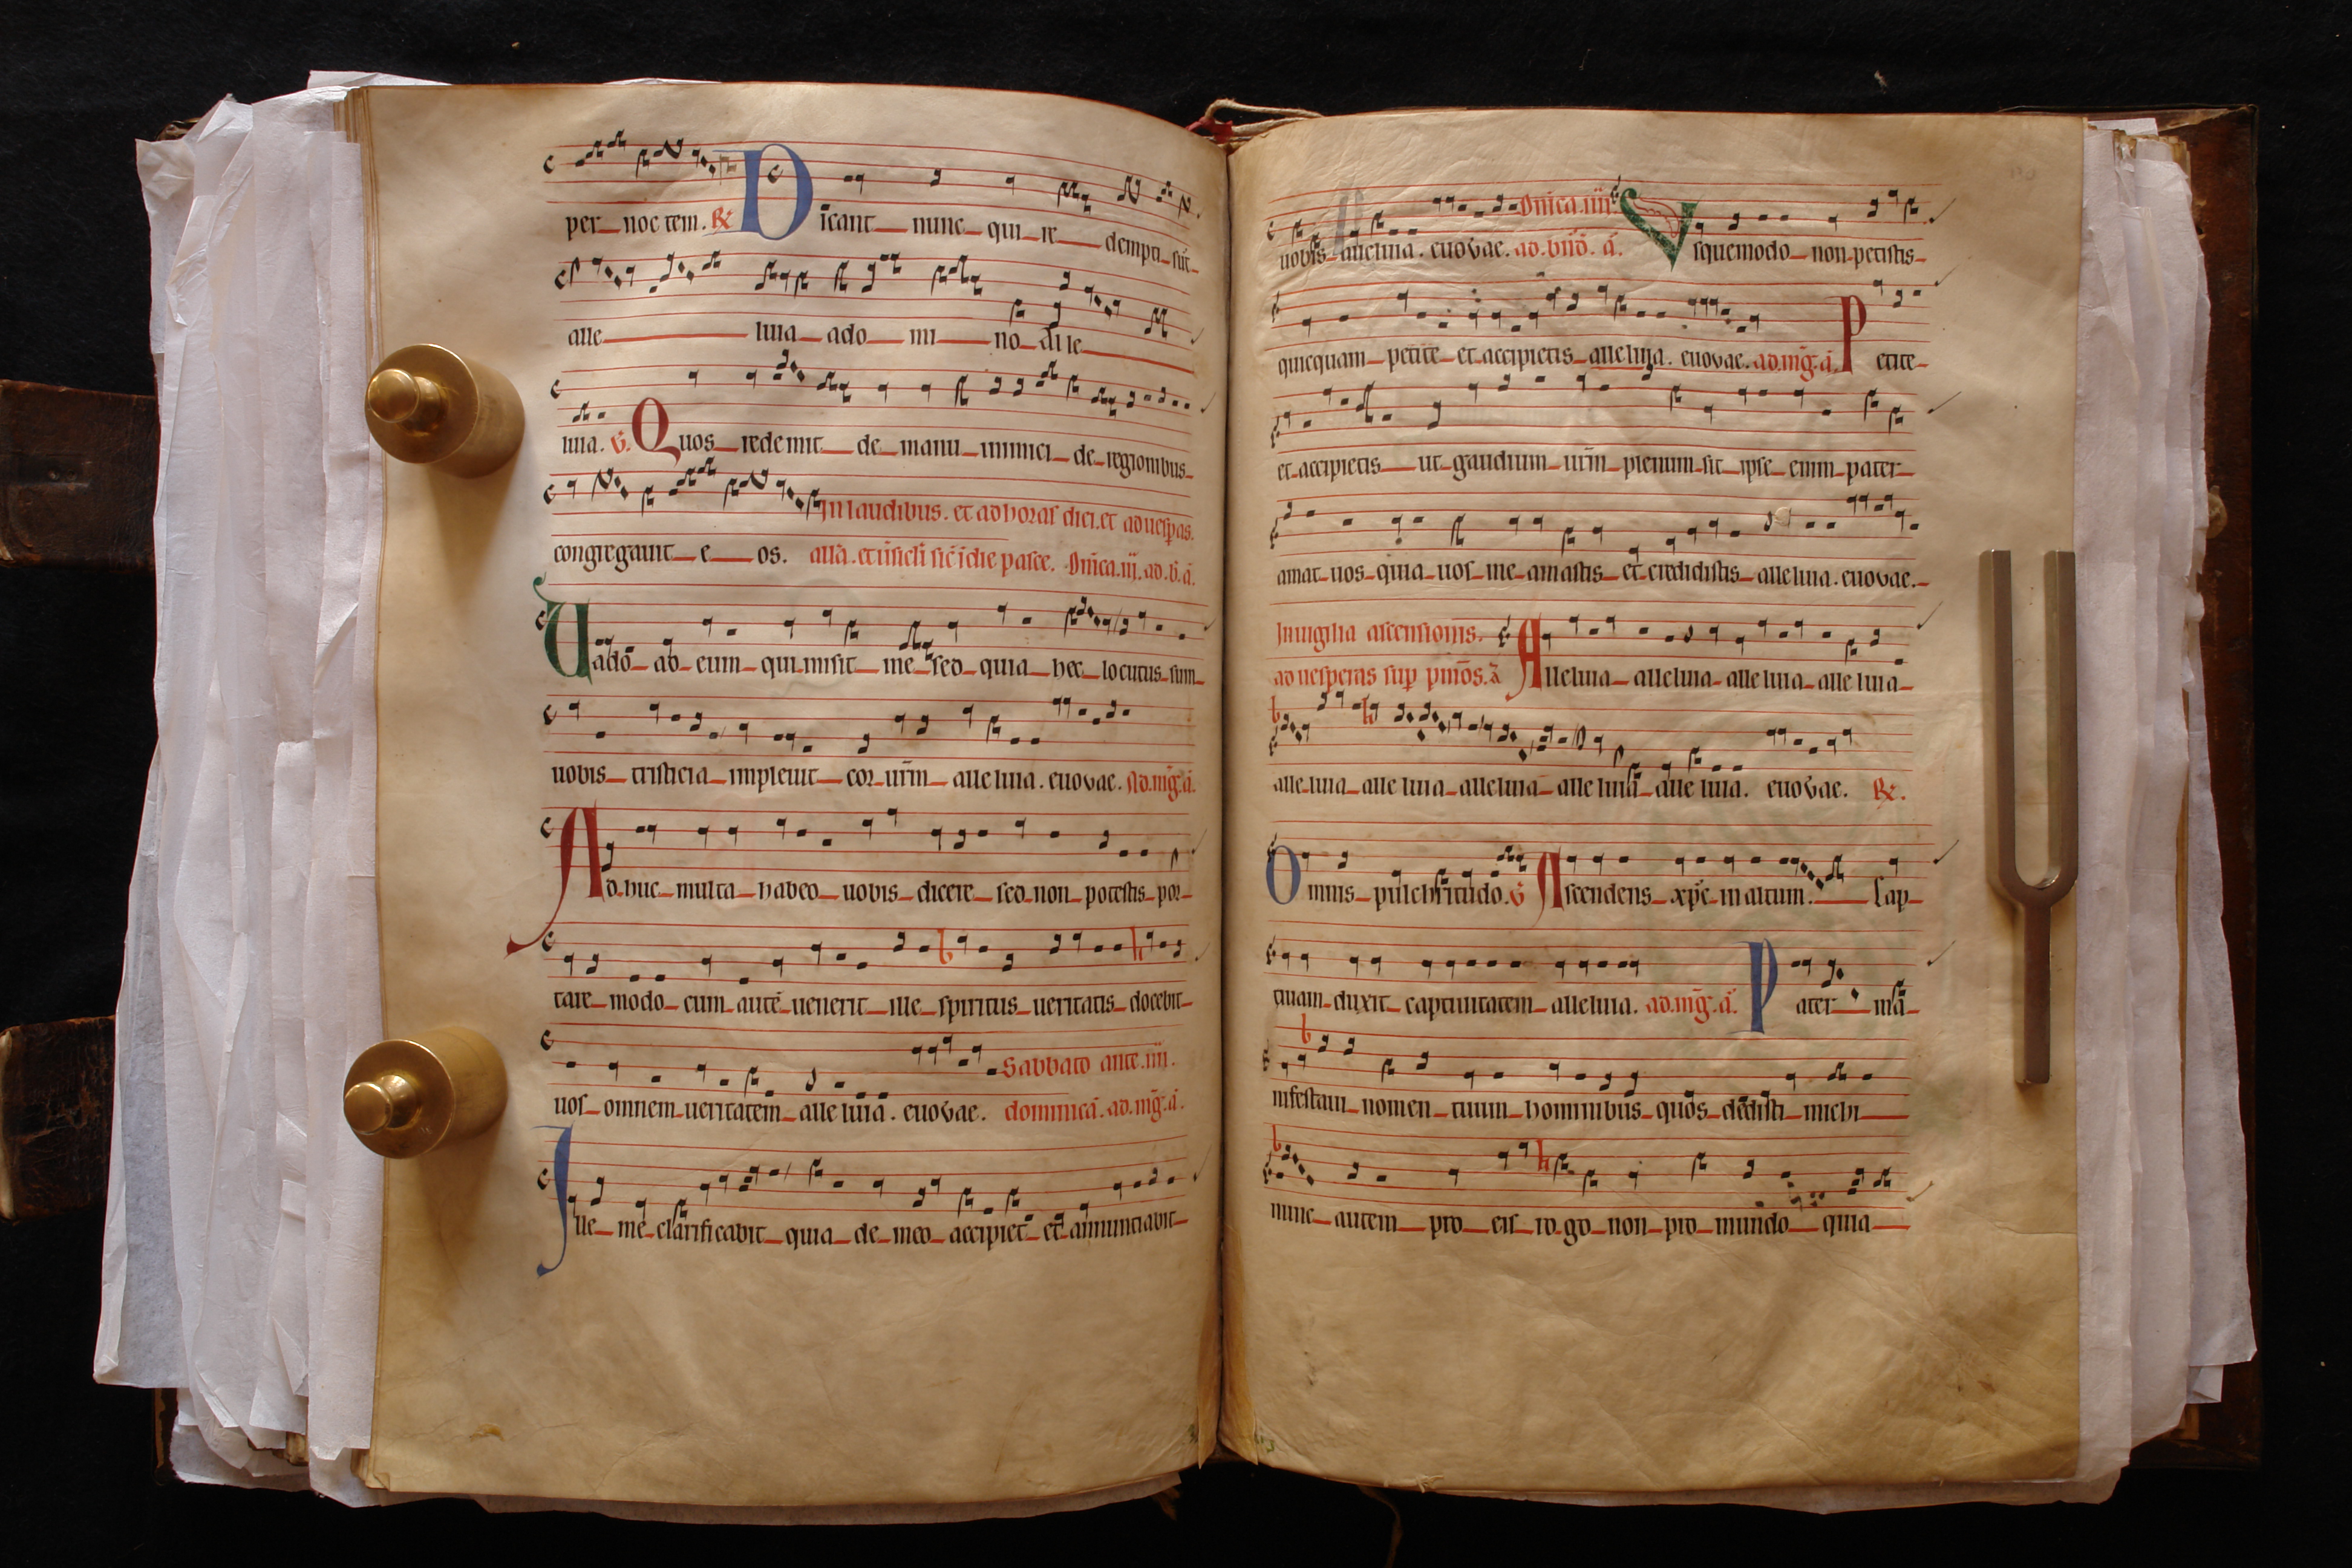 per noctem. R Dicant nunc qui redempti sūt
alleluia a domino alle
luia. V. Quos redemit de manu inimici de regionibus
In laudibus. et ad horas diei. et ad uesperas.
congregauit eos. allā. et ūsicli sic̄ ī die pasce. Dn̄ica. iij. ad. b̄. ā.
Uado ad eum qui misit me sed quia hec locutus sum
uobis tristicia impleuit cor ur̄m alleluia. euovae. Ad. mḡ. ā.
Adhuc multa habeo uobis dicere sed non potestis por
tare modo cum autē uenerit ille spiritus ueritatis docebit
Sabbato ante. iiii.
uos omnem ueritatem alleluia. euovae. dominicā. ad. mḡ. ā.
Ille me clarificabit quia de meo accipiet et annunciabit
Dn̄ica. iiii.
uobis alleluia. euovae. ad. bn̄d. ā. Vsquemodo non petistis
quicquam petite et accipietis alleluia. euovae. ad. mḡ. ā. Petite
et accipietis ut gaudium ur̄m plenum sit ipse enim pater
amat uos quia uos me amastis et credidistis alleluia. euovae.
In uigilia ascensionis.
ad uesperas sup pm̄os. ā Alleluia alleluia alleluia alleluia
alleluia alleluia alleluia alleluia alleluia. euovae. R.
Omnis pulchritudo. V Ascendens xpc̄ in altum. Cap
tiuam duxit captiuitatem alleluia. ad. mḡ. ā. Pater ma
nifestaui nomen tuum hominibus quos dedisti michi
nunc autem pro eis rogo non pro mundo quia